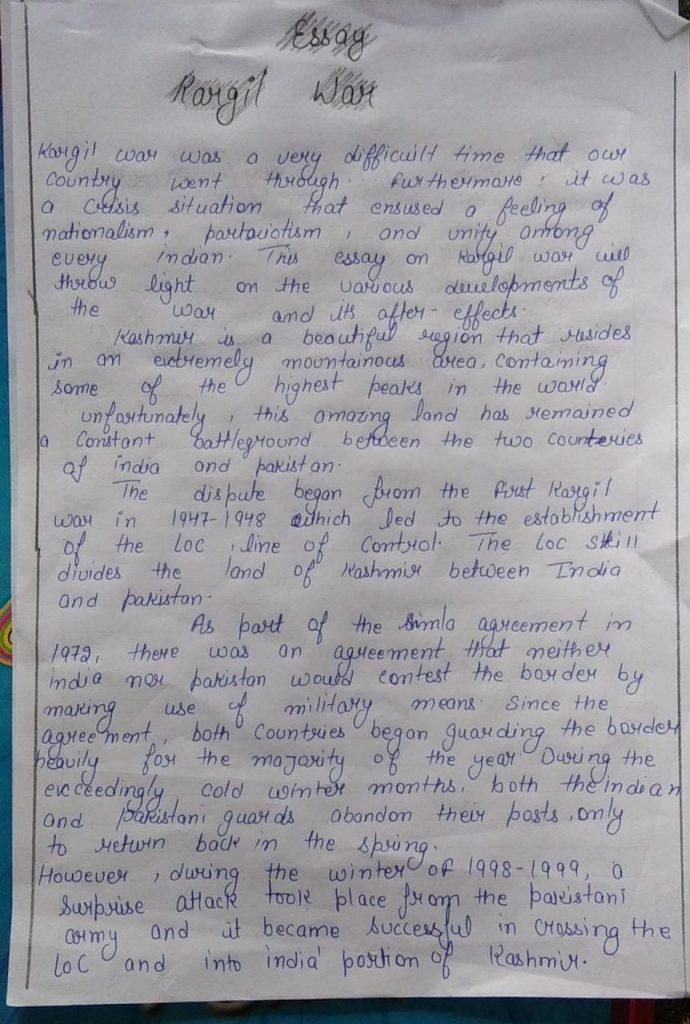 Essay
Kargil War
Kargil war was a very difficuilt time that our
country went through. Furthermore, it was
a crisis situation that ensused a feeling of
nationalism, partoiotism, and unity among
every indian. This essay on Kargil war will
throw light on the various developments of
the war and its after-effects.
Kashmir is a beautiful region that resides
in an extremely mountainous area, containing
some of the highest peaks in the world.
unfortunately, this amazing land has remained
a constant battleground between the two counteries
of india and pakistan.
The dispute began from the first Kargil
war in 1947-1948 which led to the establishment
of the LOC, line of Control. The LOC still
divides the land of Kashmir between India
and pakistan.
As part of the Simla agreement in
1972, there was an agreement that neither
india nor pakistan would contest the border by
making use of military means. Since the
agreement, both Countries began guarding the border
heavily for the majority of the year. During the
exceedingly cold winter months, both the indian
and pakistani guards abandon their posts, only
to return back in the spring.
However, during the winter of 1998-1999, a
surprise attack took place from the pakistani
army and it became successful in crossing the
LOC and into india' portion of Kashmir.